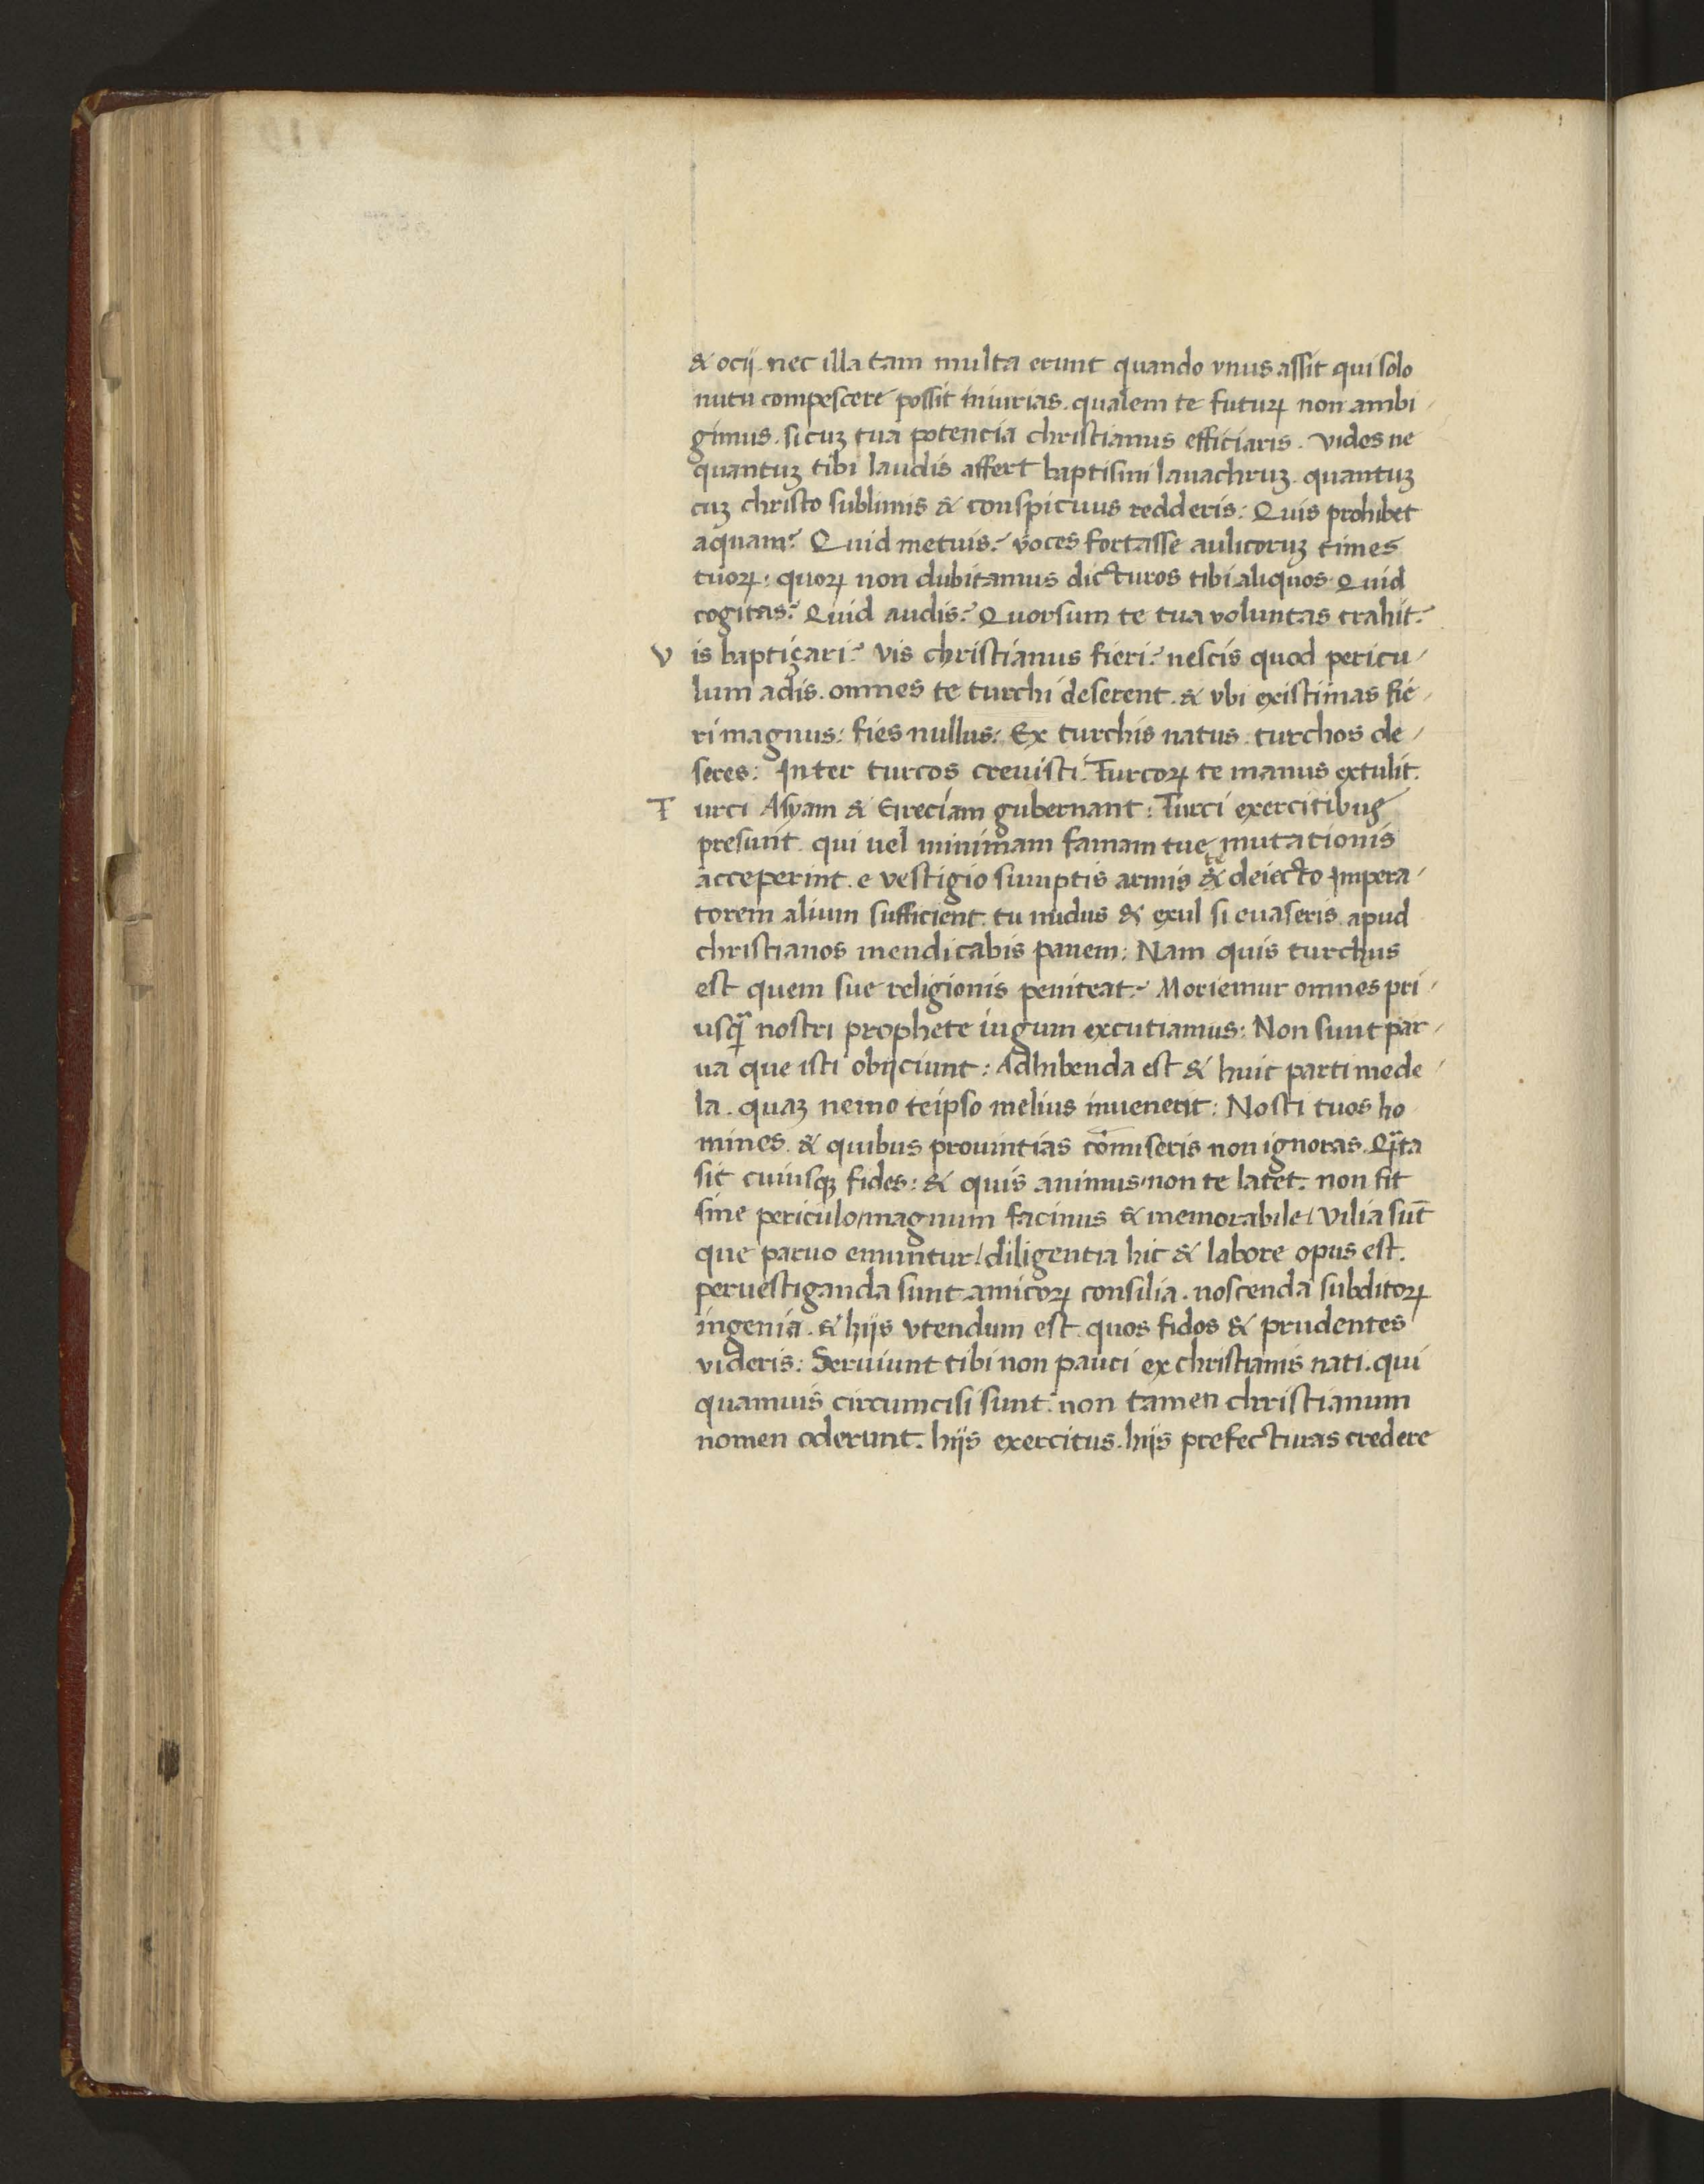 & ocij. nec illa tam multa erunt quando vnus assit qui solo
nutu compescere possit iniurias. qualem te futuꝝ non ambi-
gimus. si cuꝫ tua potencia christianus efficiaris. vides ne
quantuꝫ tibi laudis affert baptismi lauachruꝫ. quantuꝫ
cuꝫ christo sublimis & conspicuus redderis: Quis prohibet
aquam? Quid metuis? voces fortasse aulicoruꝫ times
tuoꝝ: quoꝝ non dubitamus dicturos tibi aliquos. Quid
cogitas? Quid audis? Quorsum te tua voluntas trahit?
Vis baptiçari? vis christianus fieri? nescis quod pericu-
lum adis. omnes te turchi deserent. & vbi existimas fie-
ri magnus: fies nullus: Ex turchis natus. turchos de-
seres: Inter turcos creuisti. Turcoꝝ te manus extulit.
Turci Asyam & Greciam gubernant: Turci exercitibus
presunt. qui uel minimam famam tuę mutationis
acceperint. e vestigio sumptis armis & te deiecto Impera-
torem alium sufficient. tu nudus & exul si euaseris. apud
christianos mendicabis panem: Nam quis turchus
est quem sue religionis peniteat? Moriemur omnes pri-
usꝙ̃ nostri prophete iugum excutiamus: Non sunt par-
ua que isti obijciunt: Adhibenda est & huic parti mede-
la. quaꝫ nemo teipso melius inuenerit: Nosti tuos ho
mines. & quibus prouintias cōmiseris non ignoras. Q̃ta
sit cuiusqꝫ fides: & quis animus/non te latet. non fit
sine periculo/magnum facinus & memorabile/ Vilia sūt
que paruo emuntur/diligentia hic & labore opus est.
peruestiganda sunt amicoꝝ consilia. noscenda subditoꝝ
ingenia. & hijs vtendum est. quos fidos & prudentes
videris: Seruiunt tibi non pauci ex christianis nati. qui
quamuis circumcisi sunt. non tamen christianum
nomen oderunt. hijs exercitus. hijs prefecturas credere